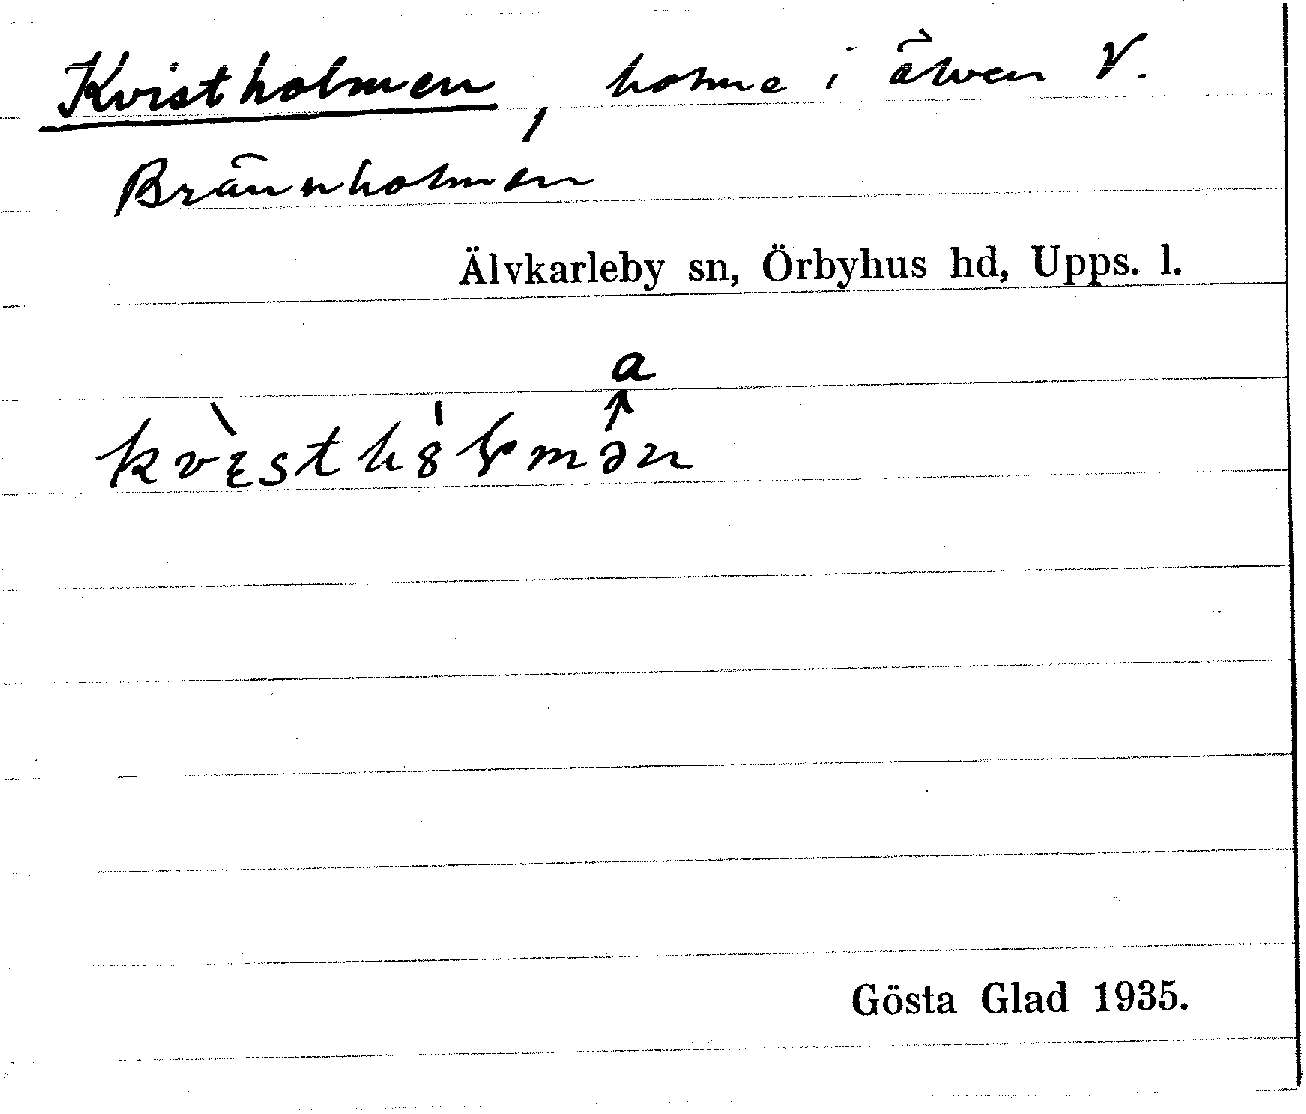 Kvistholmen, holme i älven V.
Brännholmen
Älvkarleby sn, Örbyhus hd, Upps. l.
a
↑
Gösta Glad 1935.